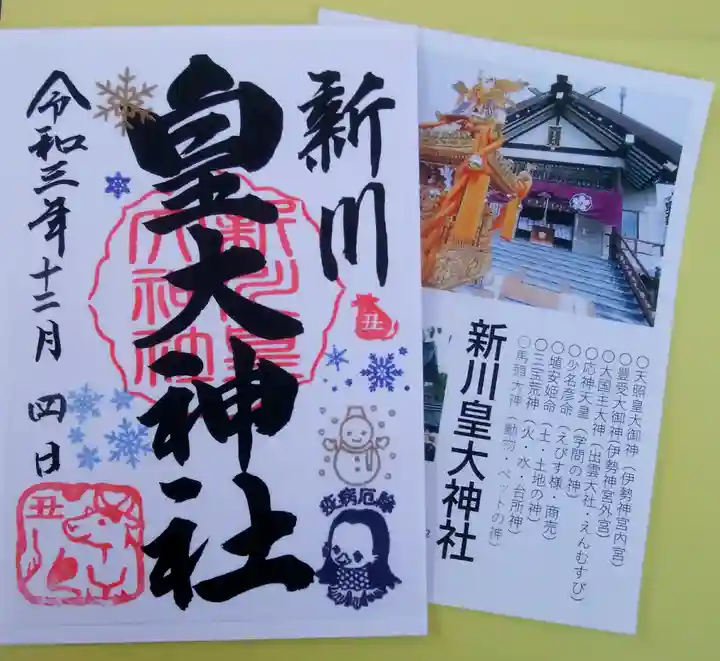 新川
皇大神社
令和三年十二月 四日
新川皇大神社
丑
疫病厄除
丑
〇天照皇大御神（伊勢神宮内宮）
〇豊受大御神（伊勢神宮外宮）
〇大国主大神（出雲大社・えんむすび）
〇応神天皇（学問の神）
〇少名彦命（えびす様・商売）
〇埴安姫命（土・土地の神）
〇三宝荒神（火・水・台所神）
〇馬頭大神（動物・ペットの神）
新川皇大神社
2